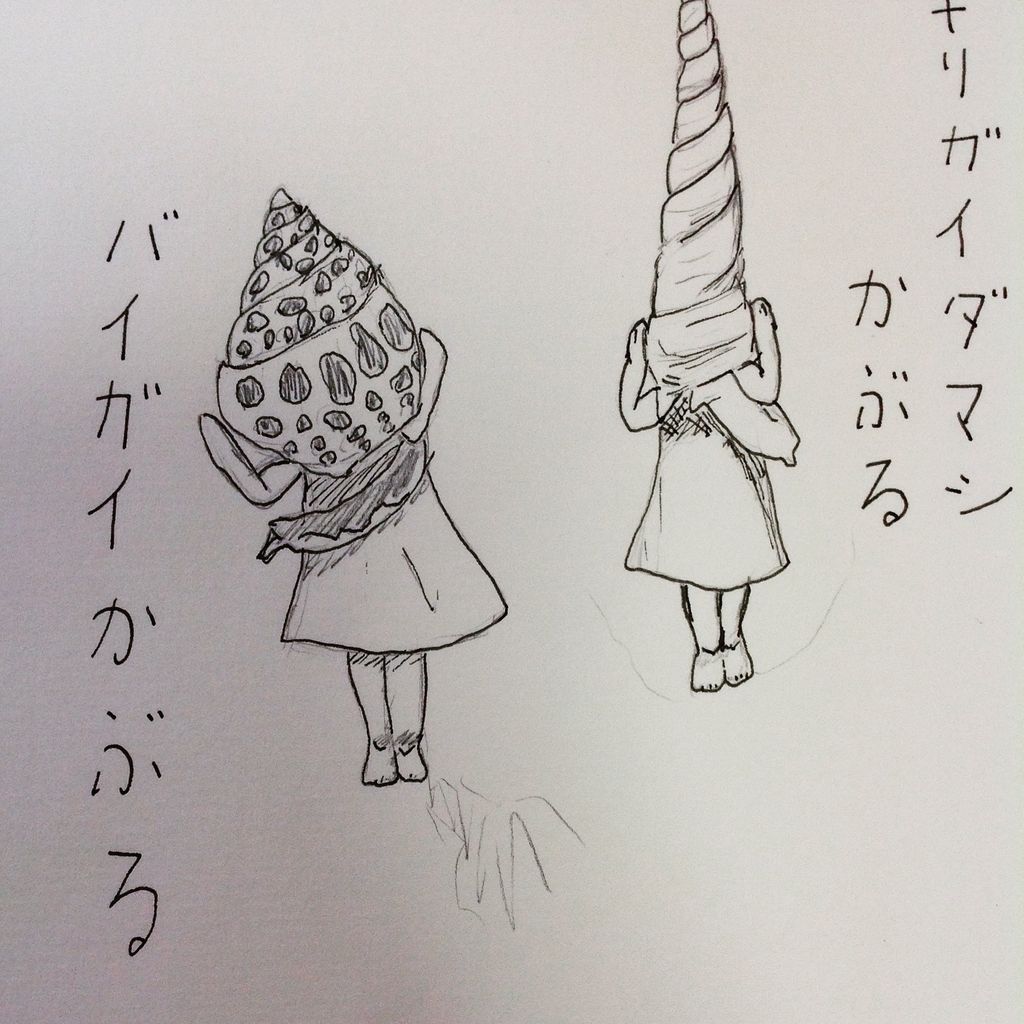 キリガイダマシ
かぶる
バイガイかぶる